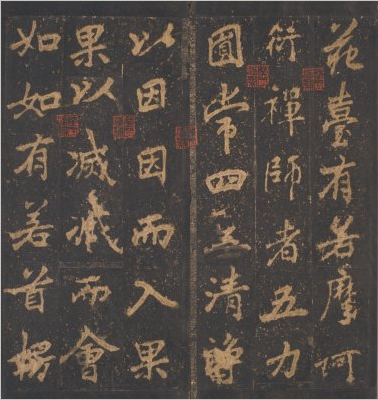 臺有若摩訶
衍禪師者五力
圓常四無清淨
以因因而入果
果以滅滅而會
如如有若首楞